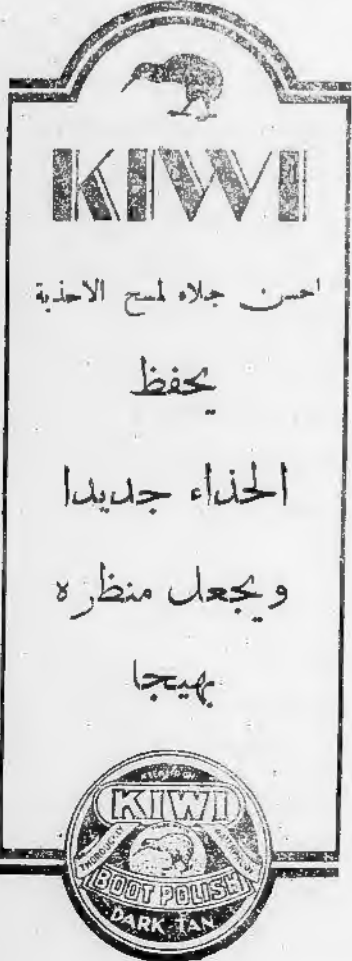 KIWI
احسن جلاء لمسح الاحذية
يحفظ
الحذاء جديدا
ويجعل منظره
بهيجا
KIWI
THOROUGHLY
BOOT POLISH
DARK TAN